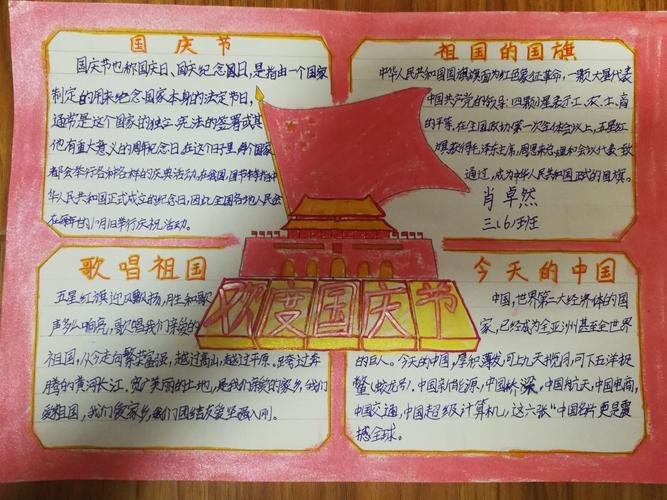 国庆节
国庆节也称国庆日、国庆纪念日,是指由一个国家
制定的用来纪念国家本身的法定节日,
通常是这个国家的独立、宪法的签署或其
他有重大意义的周年纪念日。在这个日子里,每个国家
都会举行各种各样的庆典活动。在我国,国庆节特指中
华人民共和国正式成立的纪念日,因此全国各地人民会
在每年的10月1日举行庆祝活动。
祖国的国旗
中华人民共和国国旗旗面为红色象征革命,一颗大星代表
中国共产党的领导,四颗小星表示工、农、士、商
的平等,在全国政协第一次全体会议上,五星红
旗获得毛泽东主席,周恩来总理和会议代表一致
通过,成为中华人民共和国正式的国旗。
肖卓然
三(6)班
欢度国庆节
歌唱祖国
五星红旗迎风飘扬,胜利歌
声多么响亮,歌唱我们亲爱的
祖国,从今走向繁荣富强,越过高山,越过平原。跨过奔
腾的黄河长江,宽广美丽的土地,是我们亲爱的家乡,我们
爱祖国,我们爱家乡,我们团结友爱坚强入刚。
今天的中国
中国,世界第二大经济体的国
家,已经成为全亚洲甚至全世界
的巨人。今天的中国,厚积薄发,可上九天揽月,可下五洋捉
鳖(蛟龙号)。中国新能源,中国桥梁,中国航天,中国电商,
中国交通,中国超级计算机,这六张“中国名片”更是震
撼全球。